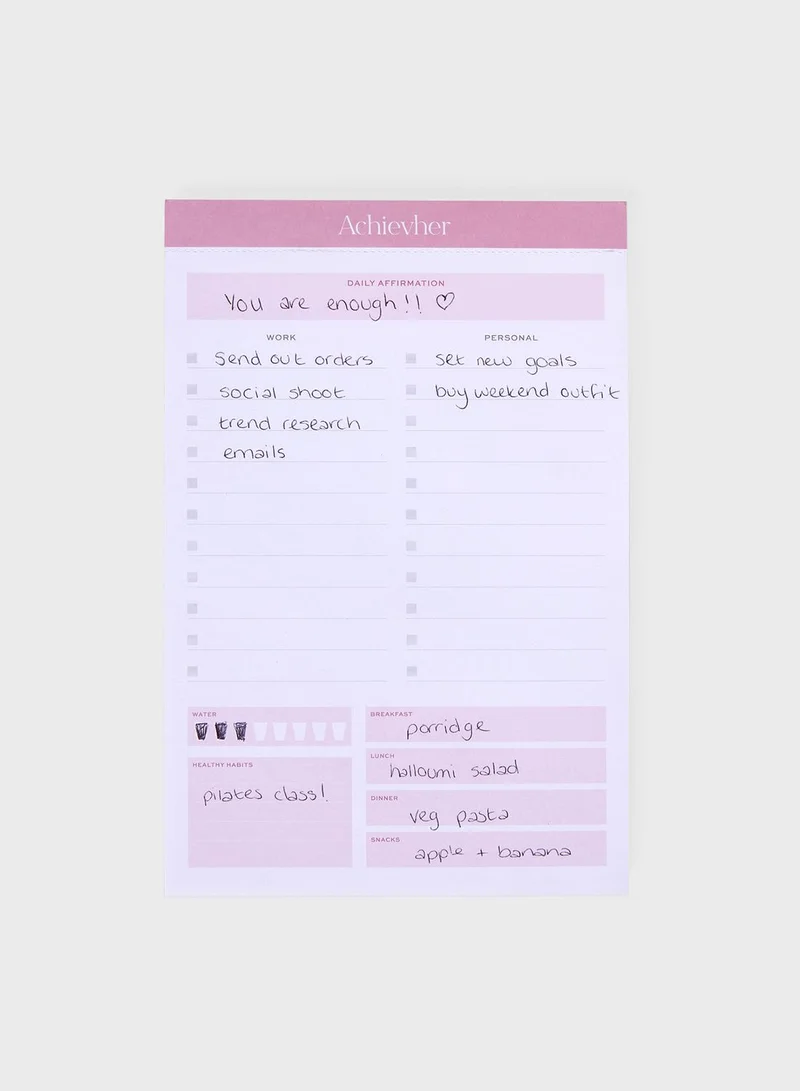 Achievher
DAILY AFFIRMATION
You are enough!! ♡
WORK
Send out orders
social shoot
trend research
emails
PERSONAL
set new goals
buy weekend outfit
WATER
HEALTHY HABITS
pilates class!
BREAKFAST
porridge
LUNCH
halloumi salad
DINNER
veg pasta
SNACKS
apple + banana